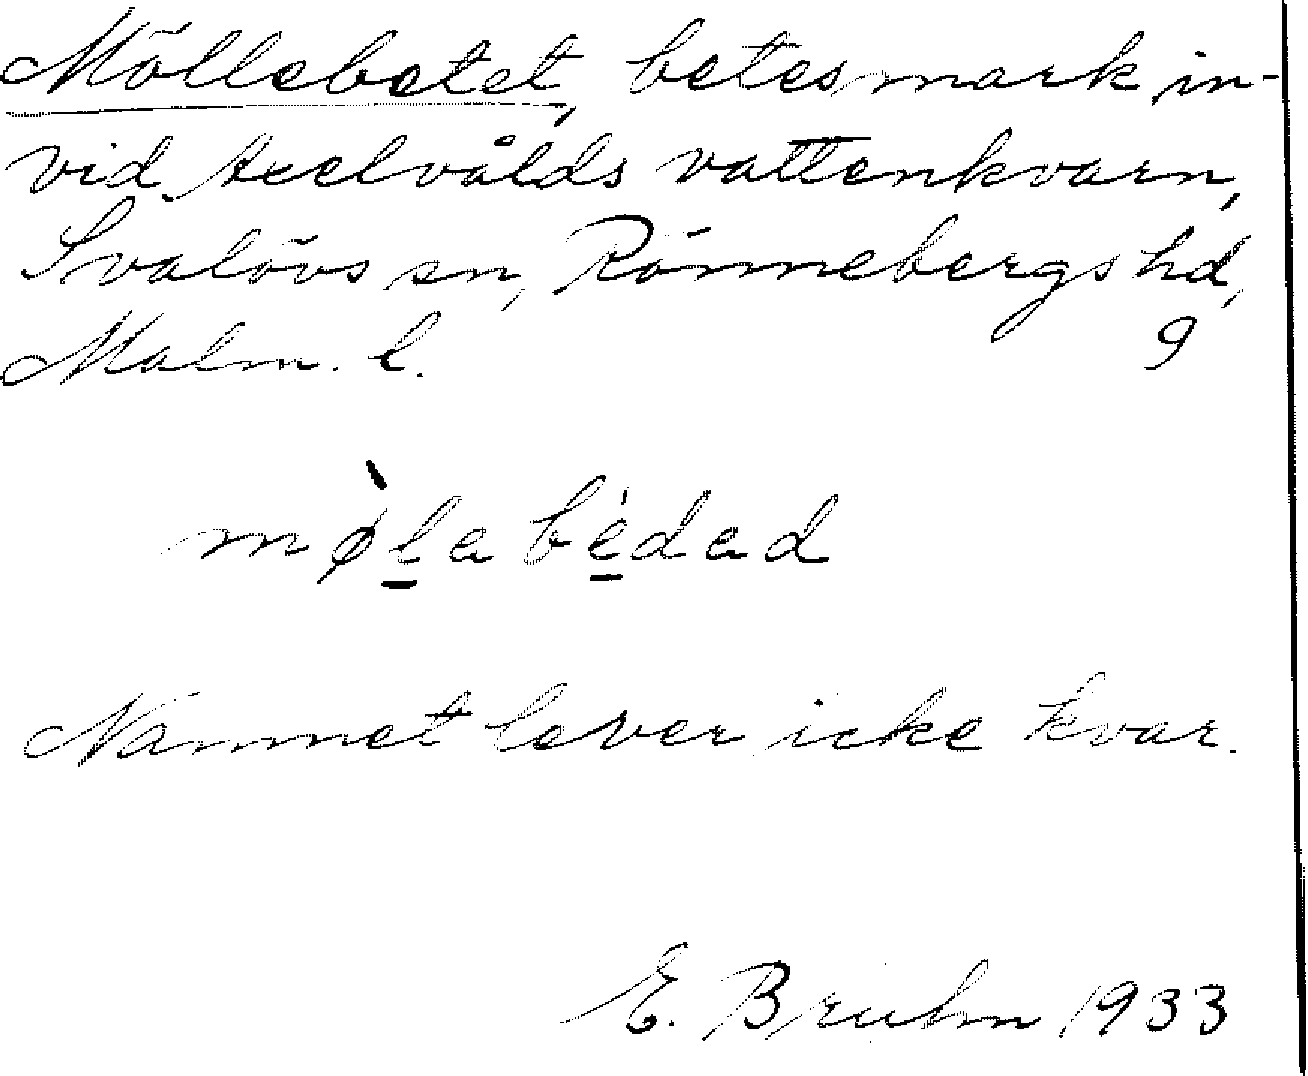 Möllebetet, betesmark in-
vid Axelvålds vattenkvarn,
Svalövs sn, Rönnebergs hd,
Malm. l. 9
mø̀l̲a bé̲dad
Namnet lever icke kvar.
E. Bruhn 1933